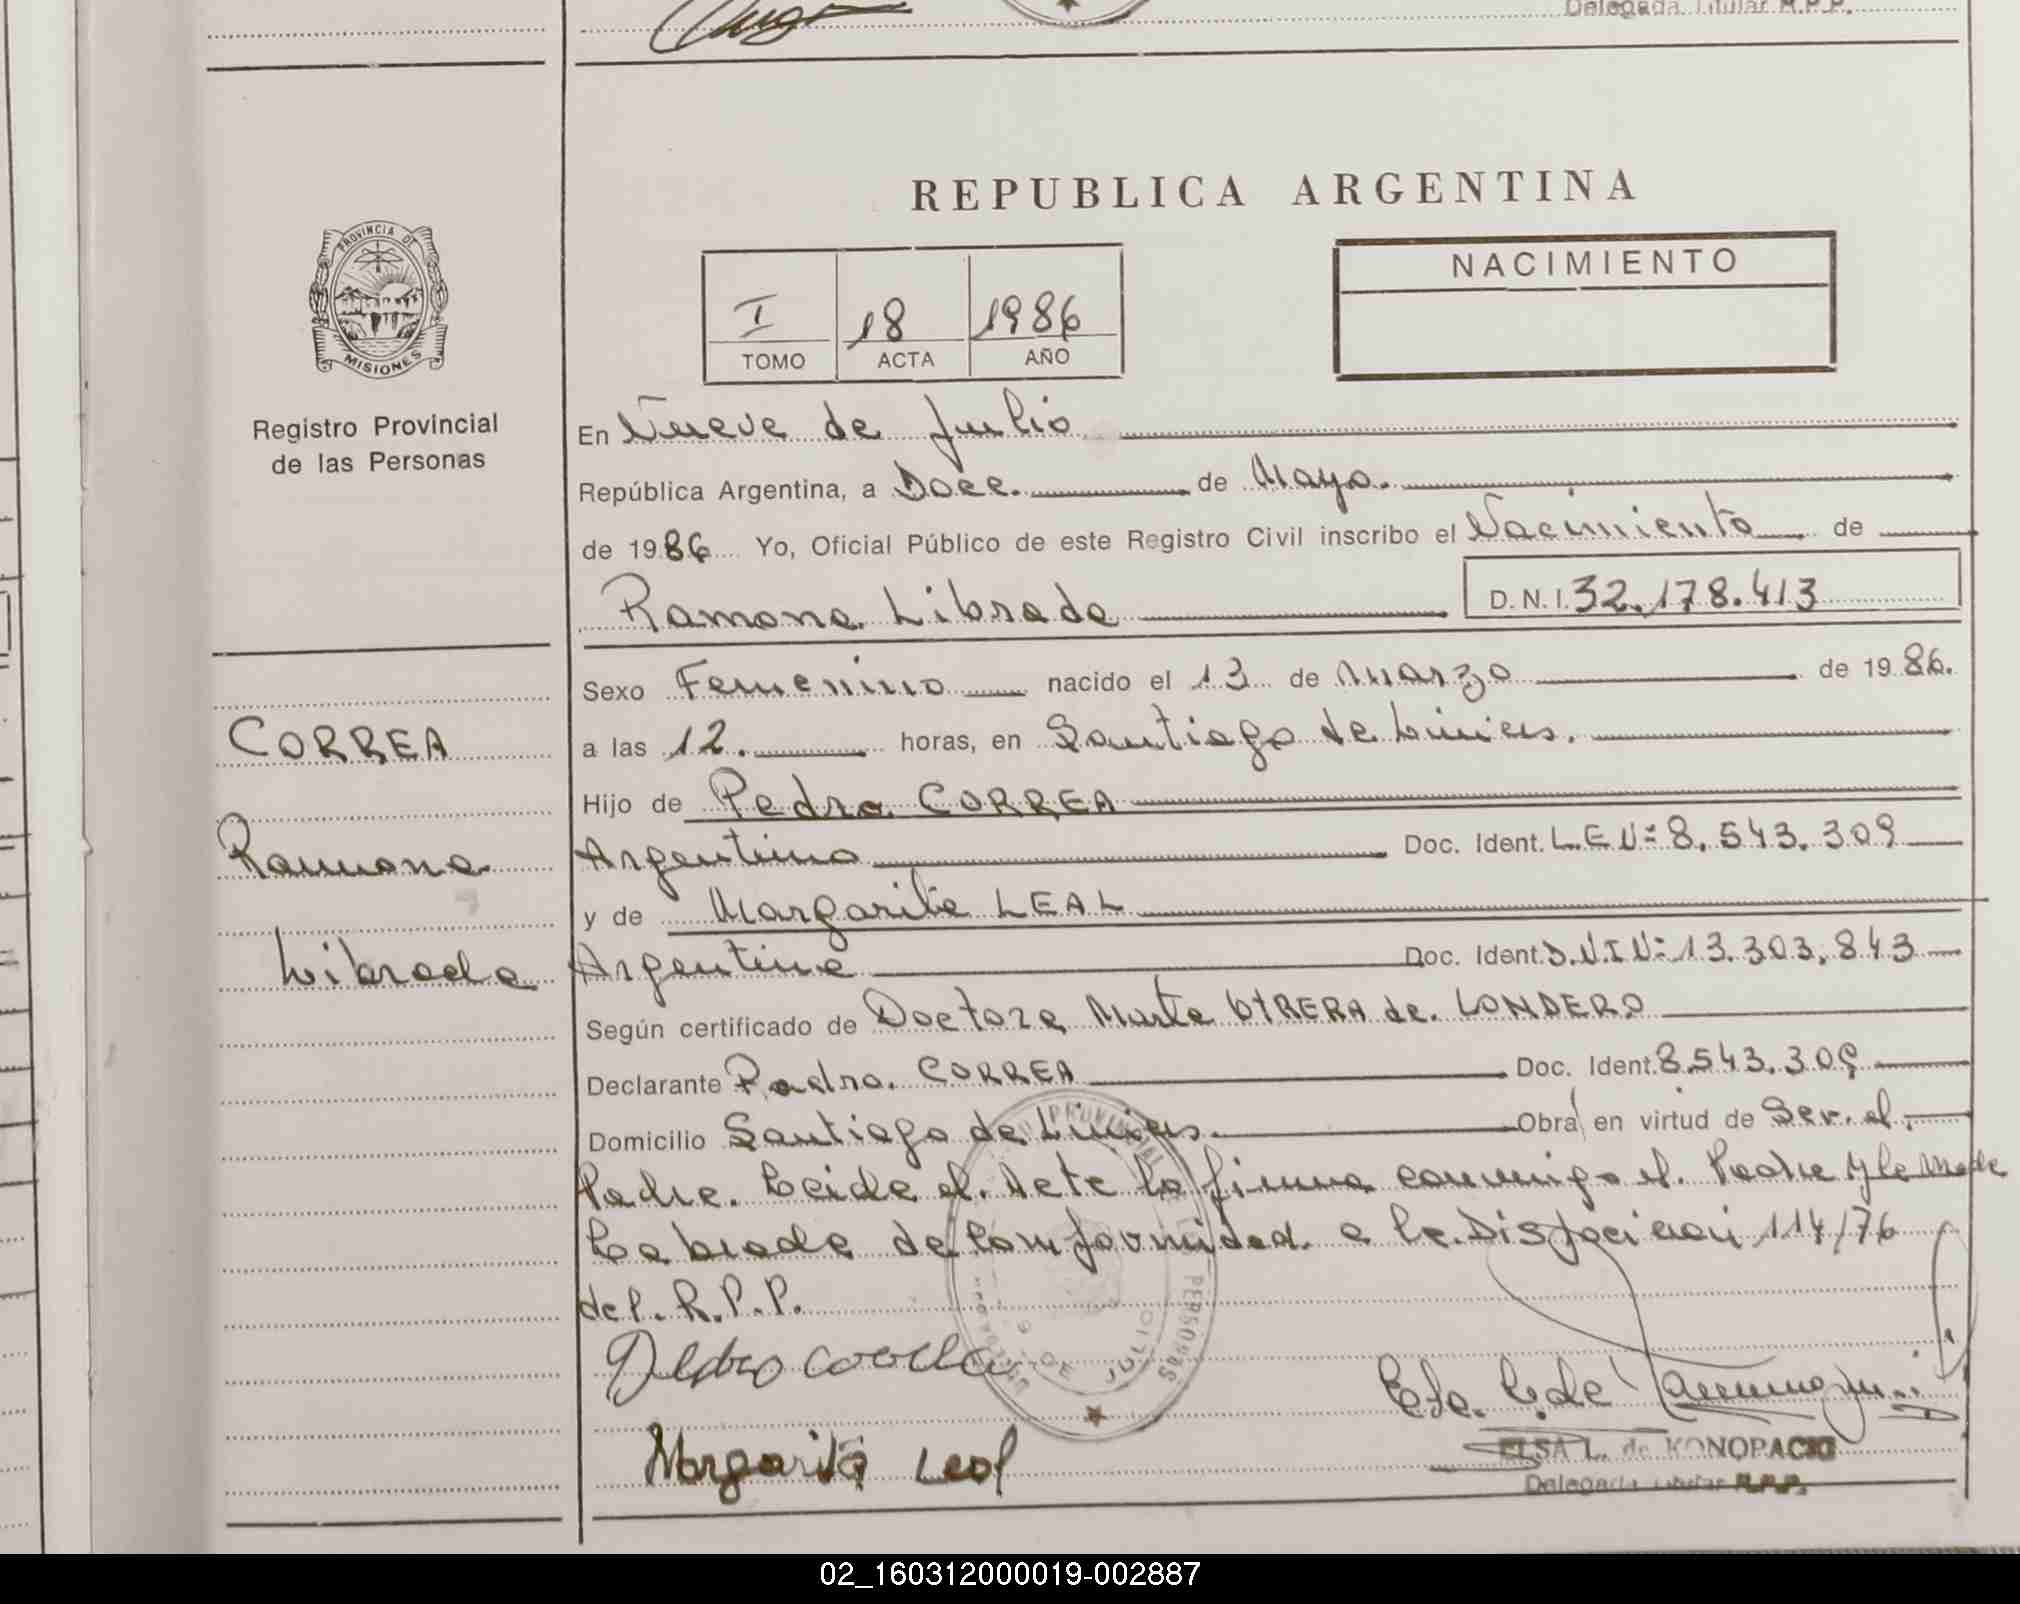 Delegada Titular R.P.P.
REPUBLICA ARGENTINA
PROVINCIA DE
MISIONES
Registro Provincial
de las Personas
I 18 1986
TOMO ACTA AÑO
NACIMIENTO
En Nueve de Julio
República Argentina, a Doce. de Mayo.
de 1986 Yo, Oficial Público de este Registro Civil inscribo el Nacimiento de
Ramona Librada D.N.I. 32.178.413
CORREA
Ramona
Librada
Sexo Femenino nacido el 13 de Marzo de 1986.
a las 12. horas, en Santiago de Liniers.
Hijo de Pedro CORREA
Argentino Doc. Ident. L.E Nº 8.543.309
y de Margarita LEAL
Argentina Doc. Ident. D.N.I Nº 13.303.843
Según certificado de Doctora Marta UTRERA de. LONDERO
Declarante Pedro. CORREA Doc. Ident. 8.543.309
Domicilio Santiago de Liniers. Obra en virtud de Ser. el.
Padre. Leida el. Acta la firma conmigo el. Padre y la Madre
Labrada de Conformidad. a la. Disposicion 114/76
del. R.P.P.
Pedro Correa
Margarita Leal
PROVINCIAL DE LAS PERSONAS
9 DE JULIO
ELSA L. de KONOPACKI
Delegada Titular R.P.P.
02_160312000019-002887